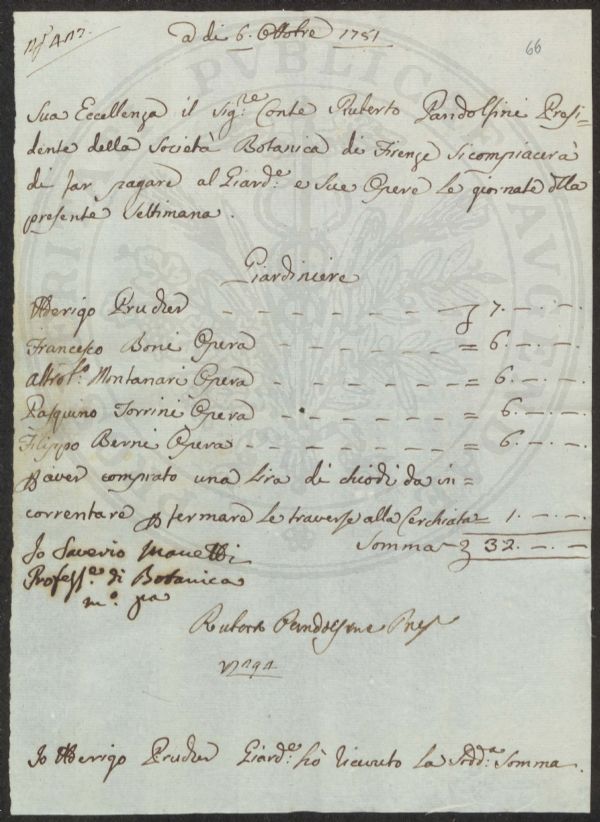 a di 6. Ottobre 1751
66
Sua Eccellenza il Sig.re Conte Ruberto Pandolfini Presi=
dente della Società Botanica di Firenze si compiacerà
di far pagare al Giard.e e sue Opere le giornate della
presente Settimana.
Giardiniere
Prucker — — — — — — 7. — . —
Francesco Boni Opera — — — — — — = 6. — . —
Montanari Opera — — — — — — = 6. — . —
Pasquino Torrini Opera — — — — — — = 6. — . —
Filippo Berni Opera — — — — — — = 6. — . —
aver comprato una lira di chiodi da in=
correntare fermare le traverse alla Cerchiata = 1. — . —
Somma 32. — . —
Io Saverio Manetti
Profess.e di Botanica
m.o pa
Ruberto Pandolfini Pres
Io Prucker Giard.e hò ricevuto la Sudd.a Somma.